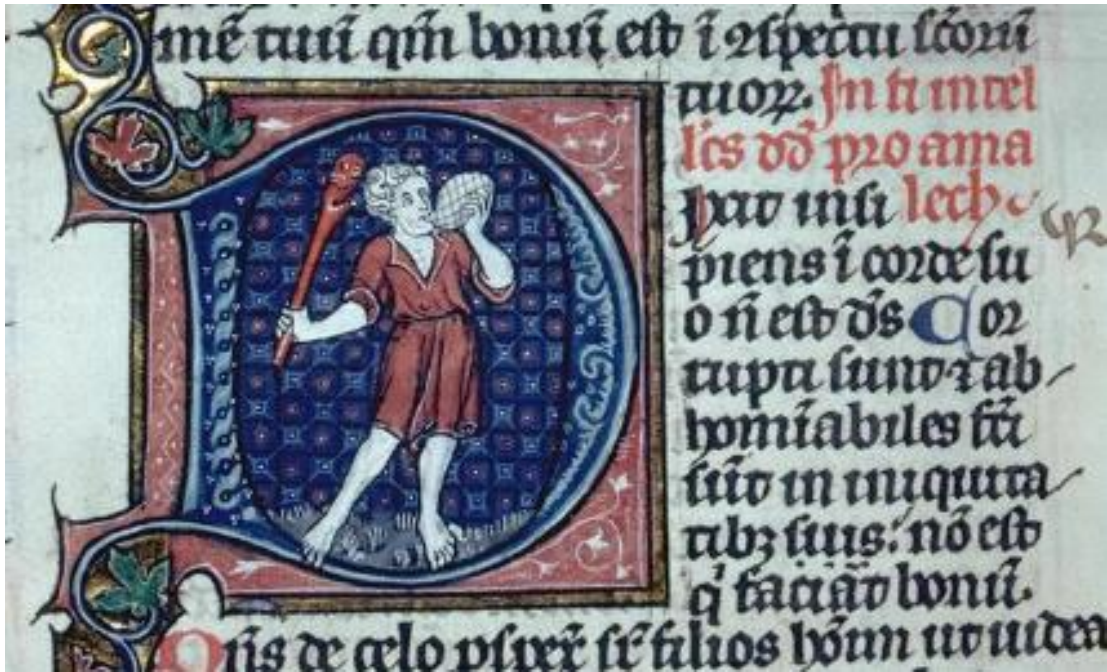 mē tuū qm̄ bonū est ī ꝯspectu scōrū
tuoꝝ. In fi intel
lcs dd pro ama
Dixit insi lech
piens ī corde su
o n̄ est ds̄ Cor
rupti sunt ⁊ ab
homīabiles fcī
sūt in iniquita
tibꝫ suis: nō est
q̄ faciat bonū.
Dn̄s de celo ꝓspex̄ sr̄ filios hōm̄ ut uidea